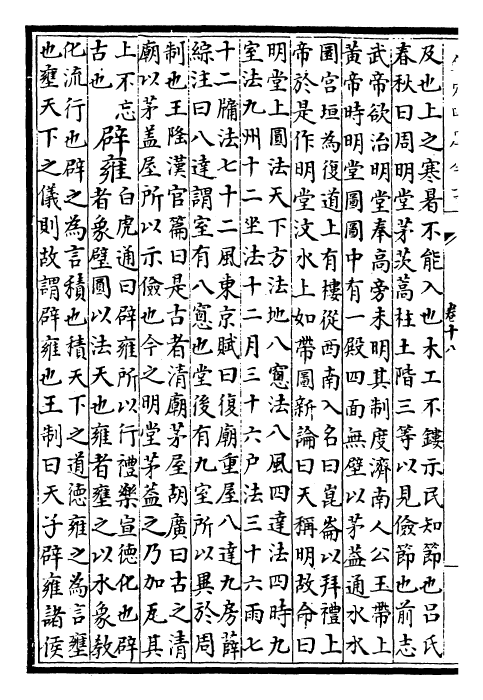 卷十八
及也上之寒暑不能入也木工不鏤示民知節也呂氏
春秋曰周明堂茅茨蒿柱土階三等以見儉節也前志
武帝欲治明堂奉高旁未明其制度濟南人公玉帶上
黄帝時明堂圖圖中有一殿四面無壁以茅葢通水水
圜宫垣為復道上有樓從西南入名曰崑崙以拜禮上
帝於是作明堂汶水上如帶圖新論曰天稱明故命曰
明堂上圓法天下方法地八窻法八風四達法四時九
室法九州十二坐法十二月三十六户法三十六雨七
十二牖法七十二風東京賦曰復廟重屋八達九房薛
綜注曰八達謂室有八窻也堂後有九室所以異於周
制也王隆漢官篇曰是古者清廟茅屋胡廣曰古之清
廟以茅盖屋所以示儉也今之明堂茅葢之乃加瓦其
上不忘
古也
辟雍
白虎通曰辟雍所以行禮樂宣德化也辟
者象璧圓以法天也雍者壅之以水象教
化流行也辟之為言積也積天下之道徳雍之為言壅
也壅天下之儀則故謂辟雍也王制曰天子辟雍諸侯